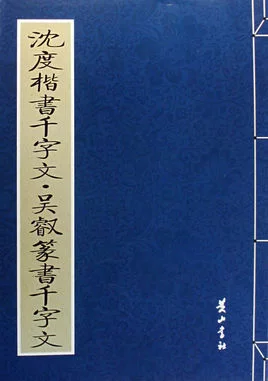 沈度楷書千字文·吴叡篆書千字文
黄山書社